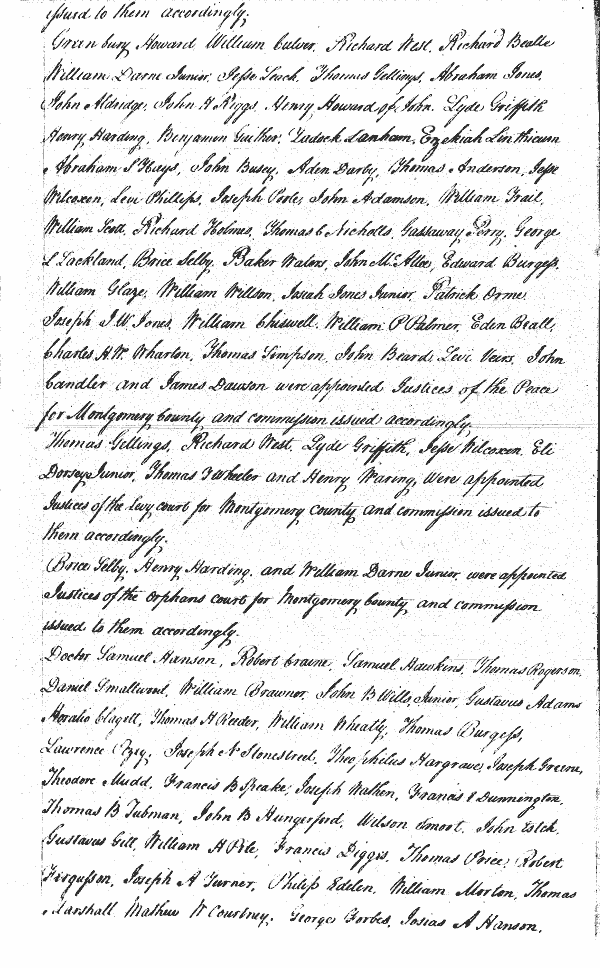 issued to them accordingly.
Greenbury Howard William Culver, Richard West, Richard Bealle
William Darne Junior, Jesse Leach, Thomas Gettings, Abraham Jones,
John Aldridge, John H Riggs, Henry Howard of John, Lyde Griffith
Henry Harding, Benjamin Gaither, Zadock Lanham, Ezekiah Linthicum
Abraham S Hays, John Busey, Aden Darby, Thomas Anderson, Jesse
Wilcoxen, Levi Phillips, Joseph Poole, John Adamson, William Trail,
William Scott, Richard Holmes, Thomas C Nicholls, Gassaway Perry, George
L Lackland, Brice Selby, Baker Waters, John McAtee, Edward Burgess,
William Glaze, William Willson, Josiah Jones Junior, Patrick Orme
Joseph I. W. Jones, William Chiswell, William P Palmer, Eden Beall,
Charles H. W. Wharton, Thomas Simpson, John Beard, Levi Veirs, John
Candler and James Dawson were appointed Justices of the Peace
for Montgomery County and commission issued accordingly.
Thomas Gettings, Richard West, Lyde Griffith, Jesse Wilcoxen, Eli
Dorsey Junior, Thomas F Wheeler and Henry Waring, were appointed
Justices of the Levy Court for Montgomery County and commission issued to
them accordingly.
Brice Selby, Henry Harding, and William Darne Junior, were appointed
Justices of the Orphans Court for Montgomery County and commission
issued to them accordingly.
Doctor Samuel Hanson, Robert Craine, Samuel Hawkins, Thomas Rogerson,
Daniel Smallwood, William Brawner, John B Wills, Junior, Gustavus Adams
Horatio Clagett, Thomas H Reeder, William Wheatly, Thomas Burgess,
Lawrence Posey, Joseph N Stonestreet, Theophilus Hargraves, Joseph Greene,
Theodore Mudd, Francis B Speake, Joseph Wathen, Francis E Dunnington,
Thomas B Tubman, John B Hungerford, Wilson Smoot, John
Gustavus Gill, William H Pile, Francis Digges, Thomas Price, Robert
Fergusson, Joseph A Turner, Philip Edelen, William Morton, Thomas
Marshall Mathew W Courtney, George Forbes, Josias A Hanson,